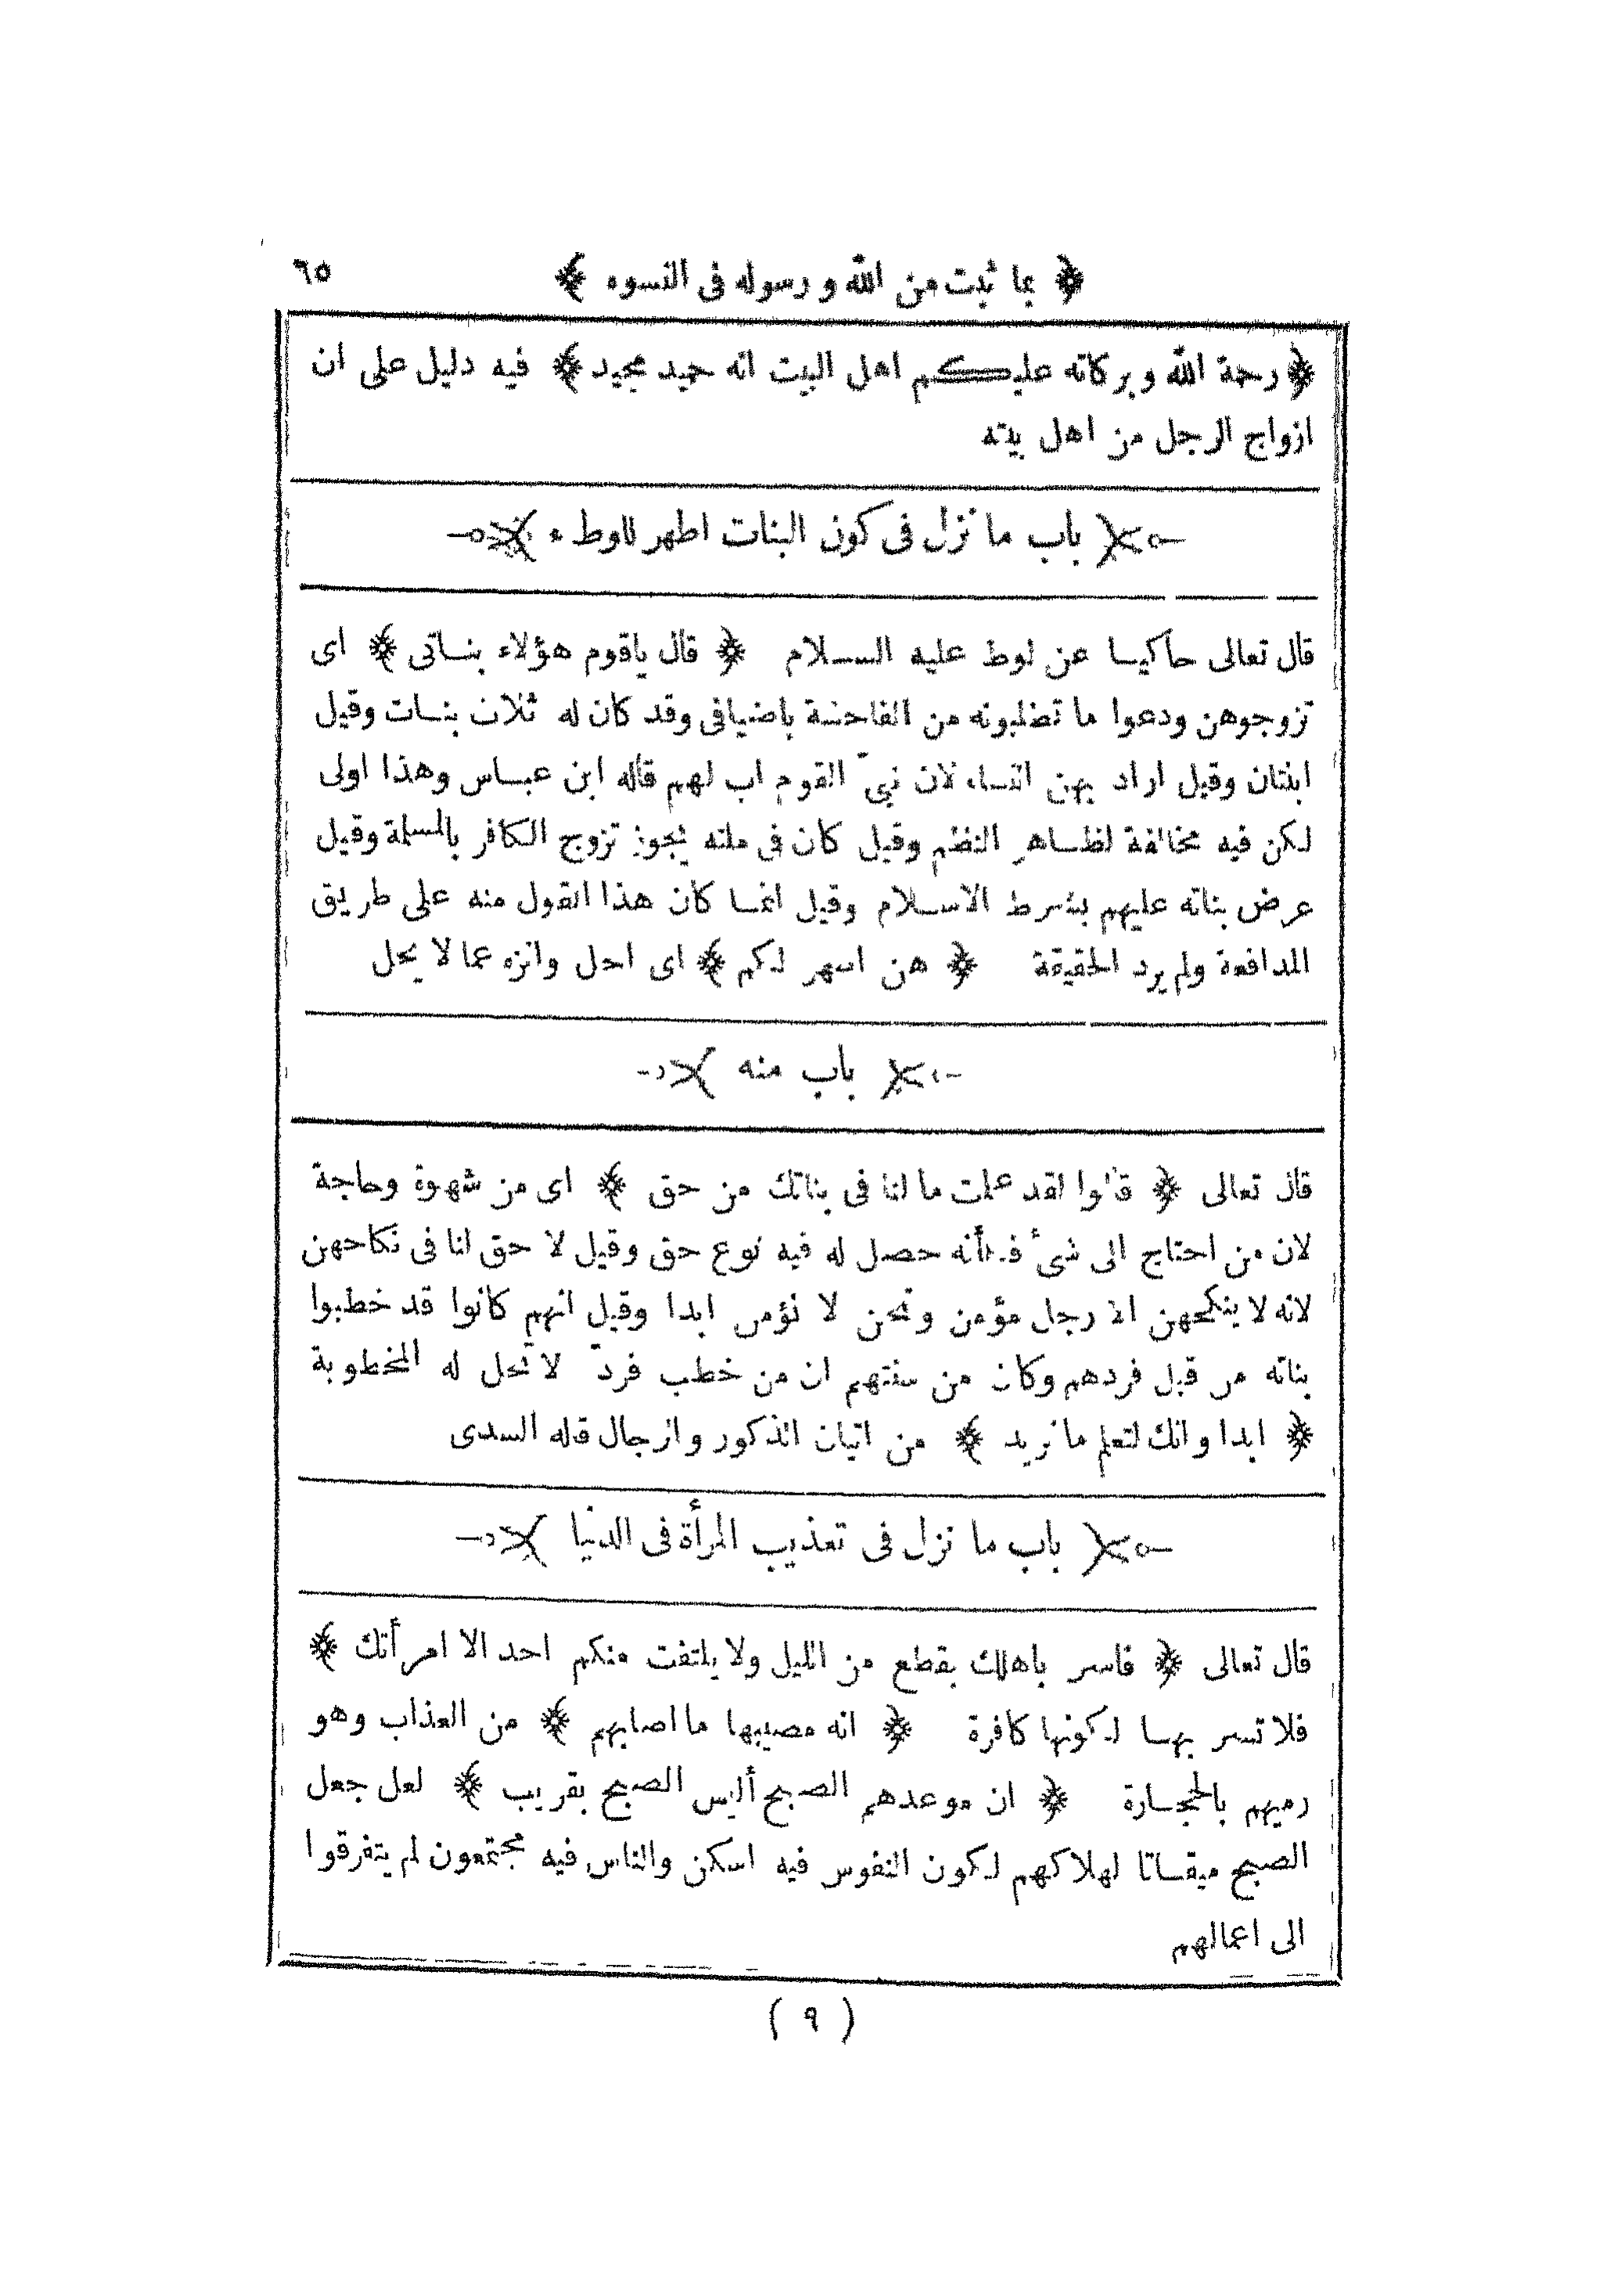 ﴿ بما ثبت من الله ورسوله فى النسوه ﴾ ٦٥
﴿ رحمة الله وبركاته عليكم اهل البيت انه حميد مجيد ﴾ فيه دليل على ان
ازواج الرجل من اهل بيته
باب ما نزل فى كون البنات اطهر للوطء
قال تعالى حاكيا عن لوط عليه السلام ﴿ قال ياقوم هؤلاء بناتى ﴾ اى
تزوجوهن ودعوا ما تطلبونه من الفاحشة باضيافى وقد كان له ثلاث بنات وقيل
ابنتان وقيل اراد بهن النساء لان نبىّ القوم اب لهم قاله ابن عباس وهذا اولى
لكن فيه مخالفة لظاهر النظم وقيل كان فى ملته يجوز تزوج الكافر بالمسلمة وقيل
عرض بناته عليهم بشرط الاسلام وقيل انما كان هذا القول منه على طريق
المدافعة ولم يرد الحقيقة ﴿ هن اطهر لكم ﴾ اى احل وانزه عما لا يحل
باب منه
قال تعالى ﴿ قالوا لقد علمت ما لنا فى بناتك من حق ﴾ اى من شهوة وحاجة
لان من احتاج الى شئ فكأنه حصل له فيه نوع حق وقيل لا حق لنا فى نكاحهن
لانه لا ينكحهن الا رجل مؤمن ونحن لا نؤمن ابدا وقيل انهم كانوا قد خطبوا
بناته من قبل فردهم وكان من سنتهم ان من خطب فردّ لا تحل له المخطوبة
﴿ ابدا وانك لتعلم ما نريد ﴾ من اتيان الذكور والرجال قاله السدى
باب ما نزل فى تعذيب المرأة فى الدنيا
قال تعالى ﴿ فاسر باهلك بقطع من الليل ولا يلتفت منكم احد الا امرأتك ﴾
فلا تسر بها لكونها كافرة ﴿ انه مصيبها ما اصابهم ﴾ من العذاب وهو
رميهم بالحجارة ﴿ ان موعدهم الصبح أليس الصبح بقريب ﴾ لعل جعل
الصبح ميقاتا لهلاكهم لكون النفوس فيه اسكن والناس فيه مجتمعون لم يتفرقوا
الى اعمالهم
( ٩ )